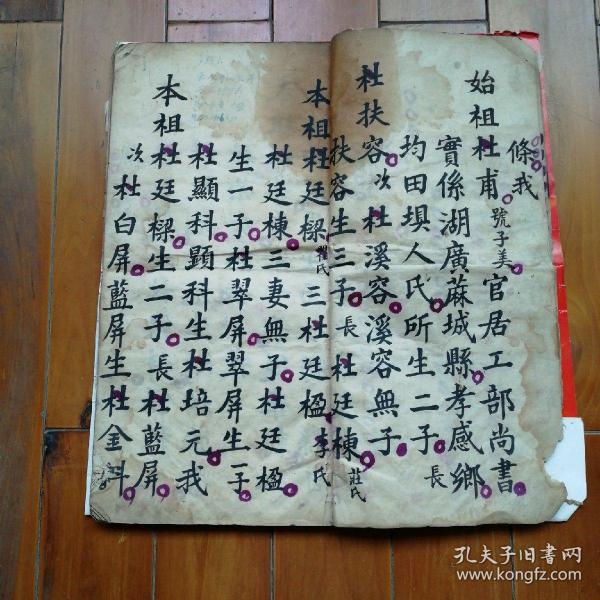 條我
始祖杜甫號子美官居工部尚書
實係湖廣蔴城縣孝感鄉
均田垻人氏所生二子長
杜扶容次杜溪容溪容無子
扶容生三子長杜廷棟莊氏
本祖杜廷樑翟氏三杜廷楹李氏
杜廷棟三妻無子杜廷楹
生一子杜翠屏翠屏生一子
杜顯科顯科生杜培元我
本祖杜廷樑生二子長杜藍屏
次杜白屏藍屏生杜金斗
孔夫子旧书网
www.kongfz.com